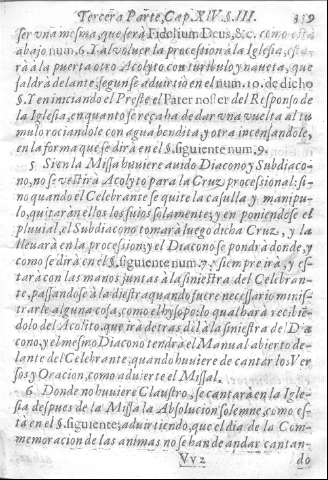 Tercera Parte, Cap. XIV. §. III. 339
ser vna mesma, que será Fidelium Deus, &c. como está
abajo num. 6. Y al voluer la procession à la Iglesia, esta-
rà à la puerta otro Acolyto con turibulo y naueta, que
saldrà delante, segun se aduirtio en el num. 10. de dicho
§. Y en iniciando el Preste el Pater noster del Responso de
la Iglesia, en quanto se reça ha de dar vna vuelta al tu
mulo rociandole con agua bendita, y otra incensandole,
en la forma que se dirà en el §. siguiente num. 9.
5. Si en la Missa huuiere auido Diacono y Subdiaco-
no, no se vestirà Acolyto para la Cruz processional: si-
no quando el Celebrante se quite la casulla y manipu-
lo, quitaràn ellos los suyos solamente; y en poniendose el
pluuial, el Subdiacono tomarà luego dicha Cruz, y la
lleuarà en la procession; y el Diacono se pondrà donde, y
como se dirà en el §. siguiente num. 7. y siempre irà, y es-
tarà con las manos juntas à la siniestra del Celebran-
te, passandose à la diestra quando fuere necessario minis-
trarle alguna cosa, como el hysopo: lo qual harà recibiē
dolo del Acolito, que irà detras dèl à la siniestra de Dia
cono, y el mesmo Diacono tendrà el Manual abierto de-
lante del Celebrante, quando huuiere de cantar los Ver
sos y Oracion, como aduierte el Missal.
6. Donde no huuiere Claustro, se cantarà en la Igle-
sia, despues de la Missa la Absolucion solemne, como es-
tà en el §. siguiente; aduirtiendo, que el dia de la Com-
memoracion de las animas no se han de andar cantan-
Vv 2 do